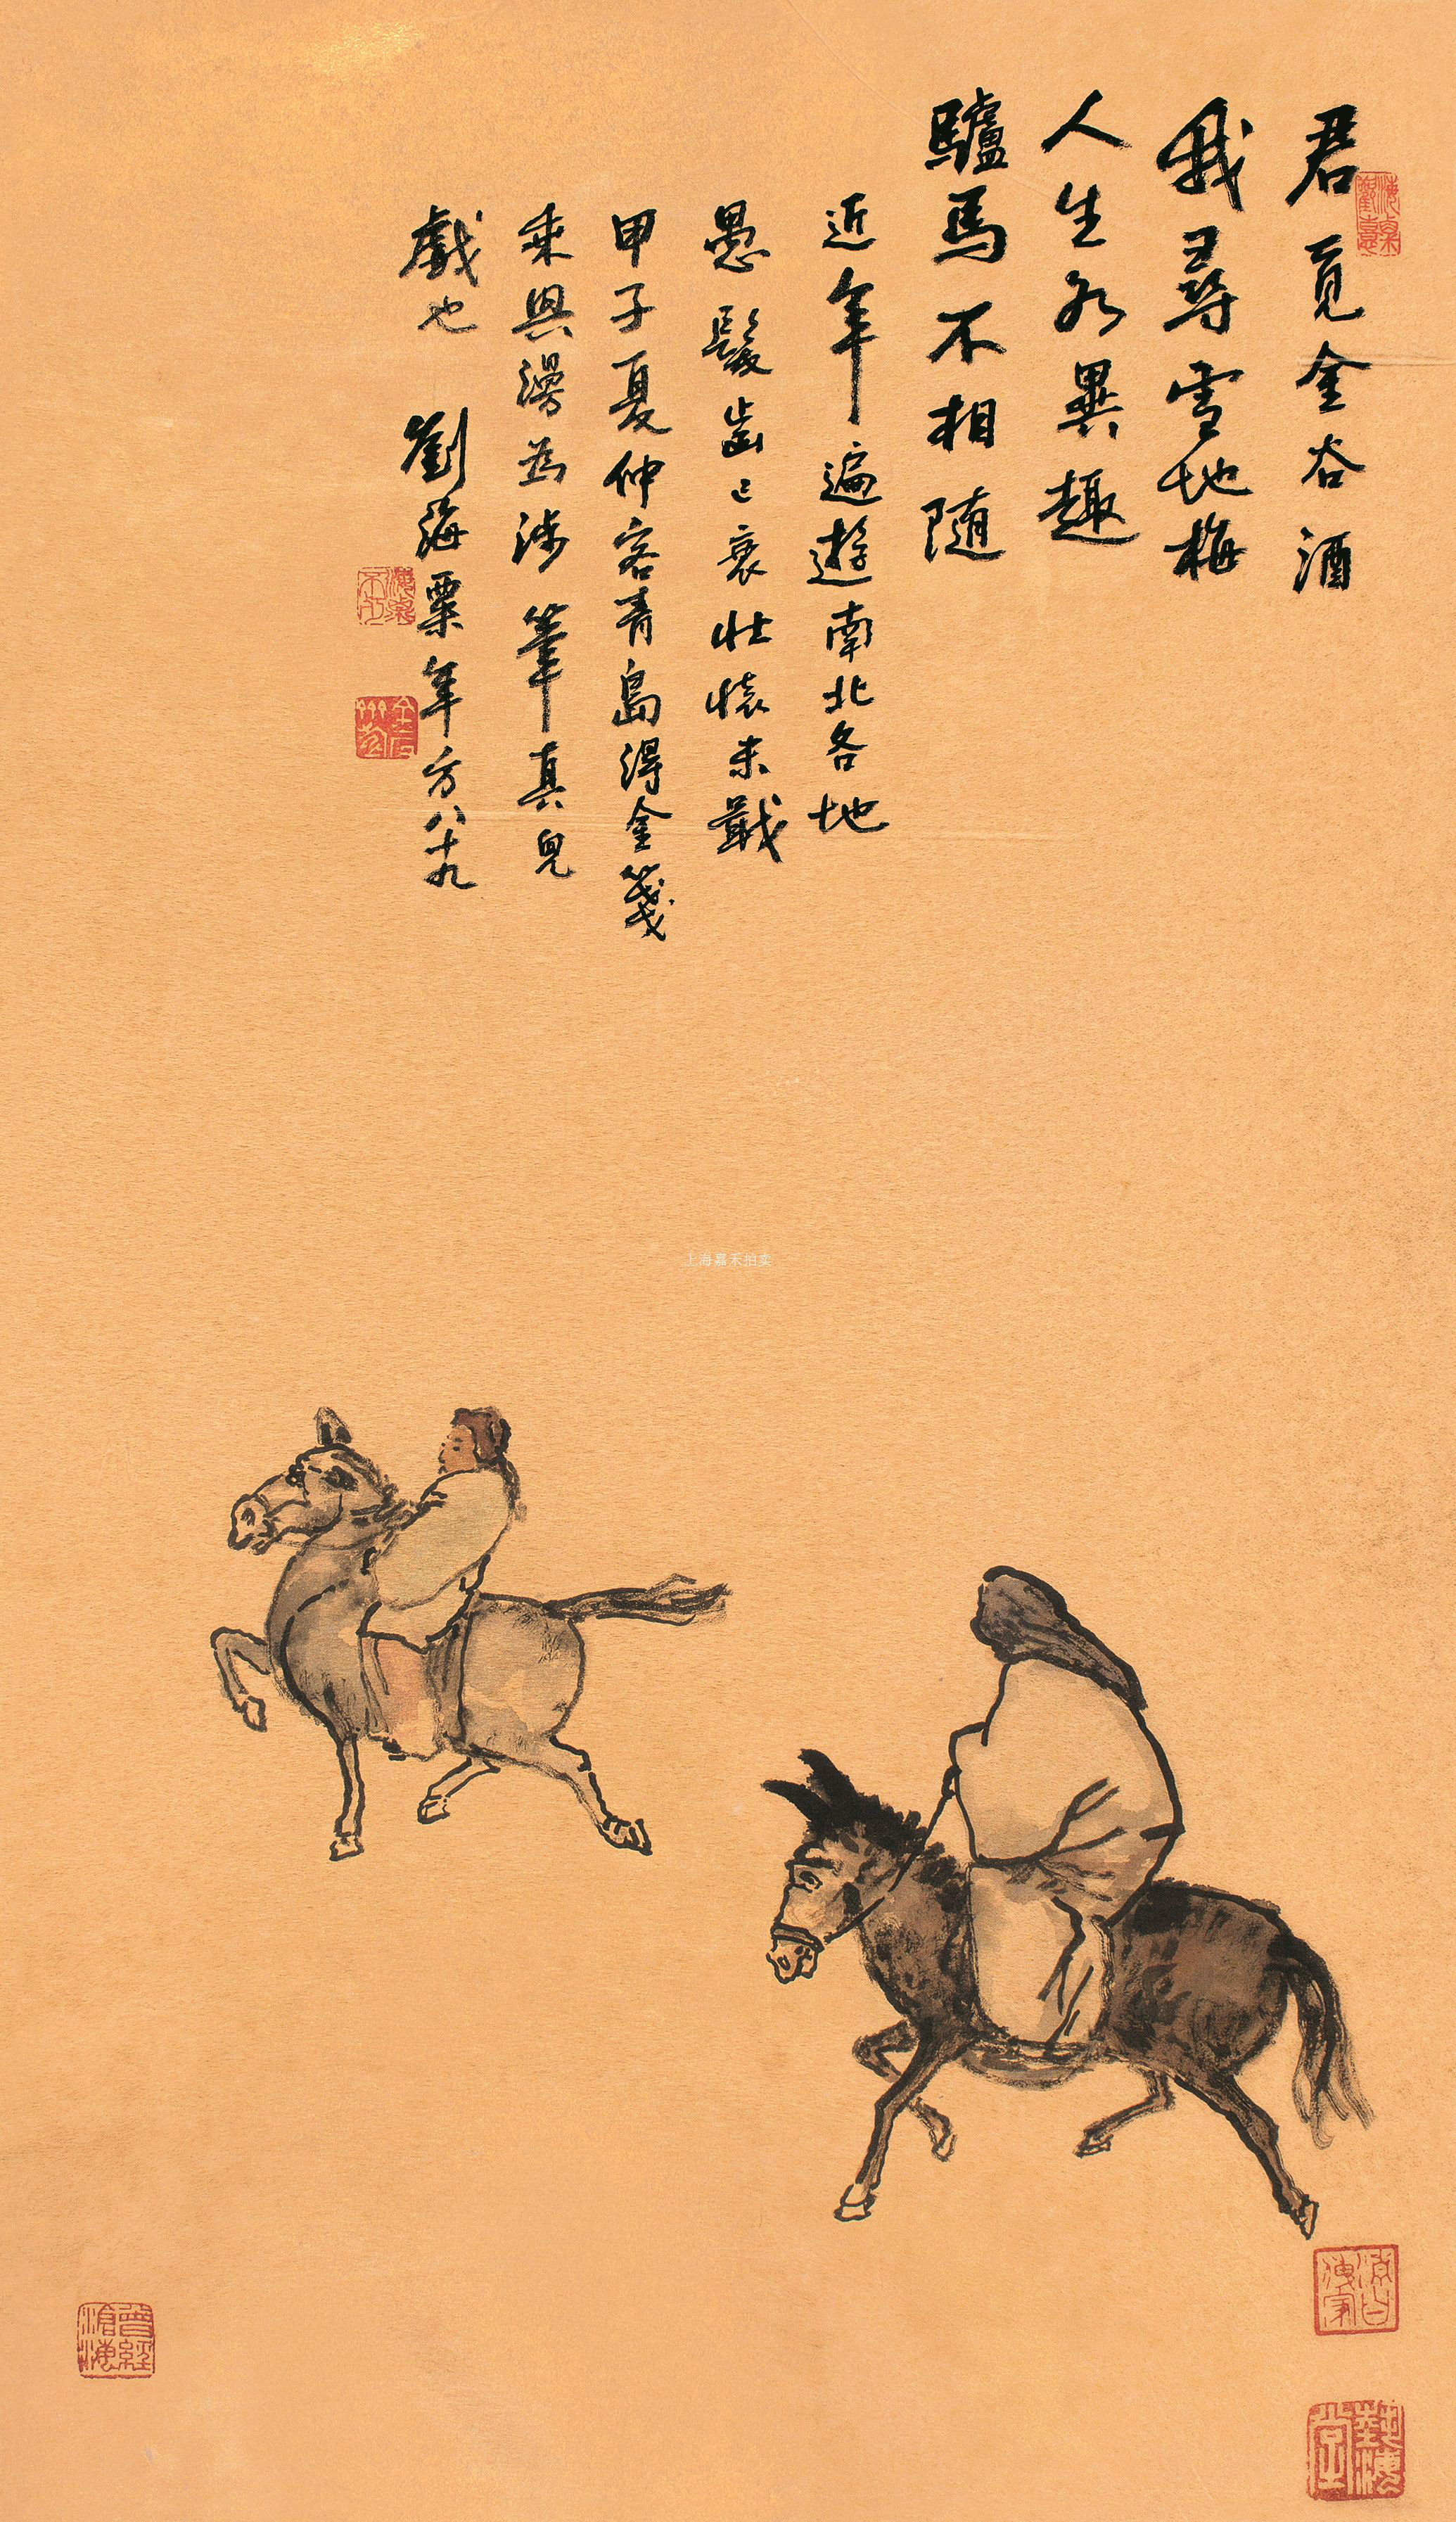 君覓金谷酒
我尋雪地梅
人生各異趣
驢馬不相隨
近年遍遊南北各地
愚髮齒已衰壯懷未戢
甲子夏仲客青島得金箋
乘興漫為涉筆真兒
戲也 劉海粟年方八十九
曾經滄海
藝海堂
上海嘉禾拍卖